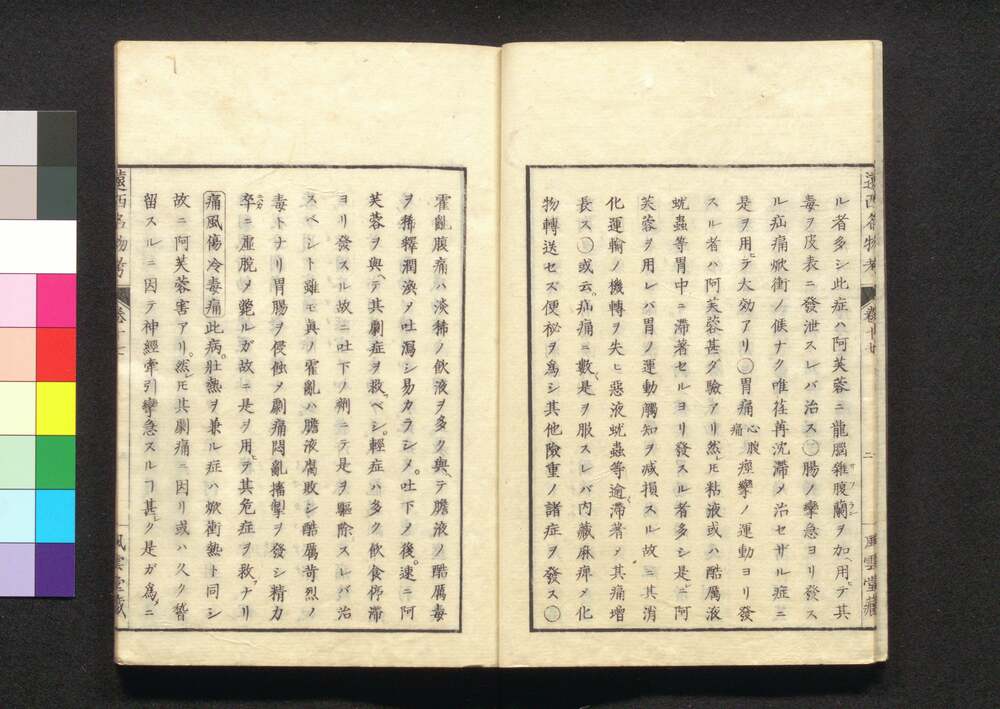 ル者多シ此症ハ阿芙蓉ニ龍腦雜腹蘭ヲ加ヘ用ヒテ其
毒ヲ皮表ニ發泄スレバ治ス〇腸ノ攣急ヨリ發ス
ル疝痛焮衝ノ候ナク唯荏苒沈滯メ治セザル症ニ
是ヲ用ヒテ大効アリ〇胃痛心腹痛痙攣ノ運動ヨリ發
スル者ハ阿芙蓉甚ダ驗アリ然レ𪜈粘液或ハ酷厲液
蚘蟲等胃中ニ滯著セルヨリ發スル者多シ是レニ阿
芙蓉ヲ用レバ胃ノ運動觸知ヲ減損スル故ニ其消
化運輸ノ機轉ヲ失ヒ惡液蚘蟲等逾〻滯著メ其痛增
長ス〇或云。疝痛ニ數〻是ヲ服スレバ内藏麻痺メ化
物轉送セズ便祕ヲ爲シ其他險重ノ諸症ヲ發ス〇
遠西名物考
卷十七
二
風雲堂藏
霍亂腹痛ハ淡稀ノ飲液ヲ多ク與ヘテ膽液ノ酷厲毒
ヲ稀釋潤渙メ吐瀉シ易カラシメ。吐下メ後。速ニ阿
芙蓉ヲ與ヘテ其劇症ヲ救ベシ。輕症ハ多ク飲食停滯
ヨリ發スル故ニ吐下ノ劑ニテ是ヲ驅除スレバ治
スベシト雖モ眞ノ霍亂ハ膽液腐敗シ酷厲苛烈ノ
毒トナリ胃腸ヲ侵蝕メ劇痛悶亂搐掣ヲ發シ精力
卒ニ虛脫メ斃ルガ故ニ是ヲ用ヒテ其危症ヲ救フナリ
痛風傷冷毒痛此病。壯熱ヲ兼ル症ハ焮衝熱ト同シ
故ニ阿芙蓉害アリ。然レ𪜈其劇痛ニ因リ或ハ久ク
留スルニ因テ神經牽引攣急スルヿ甚シク是ガ爲メニ
遠西名物考
卷十七
風雲堂藏